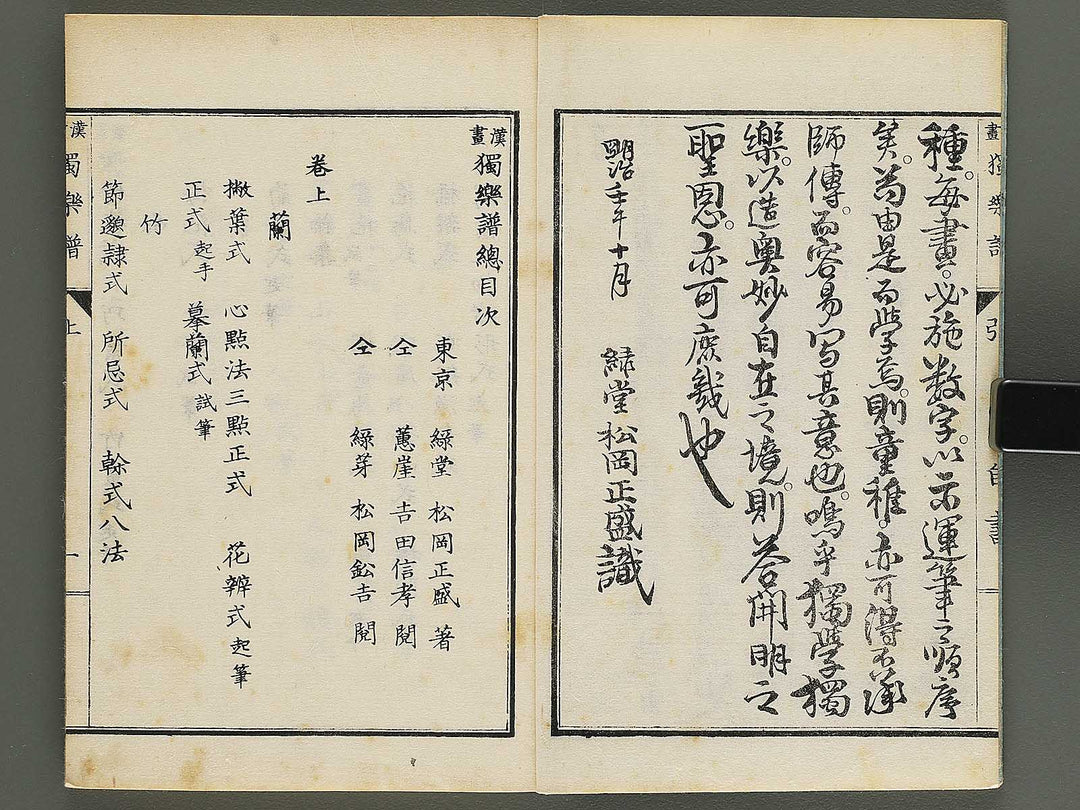 種。每畫。必施数字。以示運筆之順序
矣。蓋由是而学焉。則童稚。亦可得不承
師傳。而容易写其意也。嗚乎獨学獨
樂。以造奥妙自在之境。則荅開明之
聖恩。亦可庶幾也
明治壬午十月 緑堂松岡正盛識
畫獨樂譜
自言
漢畫獨樂譜總目次
東京 綠堂 松岡正盛 著
仝 蕙崖 吉田信孝 閲
仝 綠芽 松岡鈆吉 閲
卷上
蘭
撇葉式 心點法三點正式 花辨式起筆
正式起手 摹蘭式試筆
竹
節邈隷式 所忌式 榦式八法
漢 獨樂譜 上 一